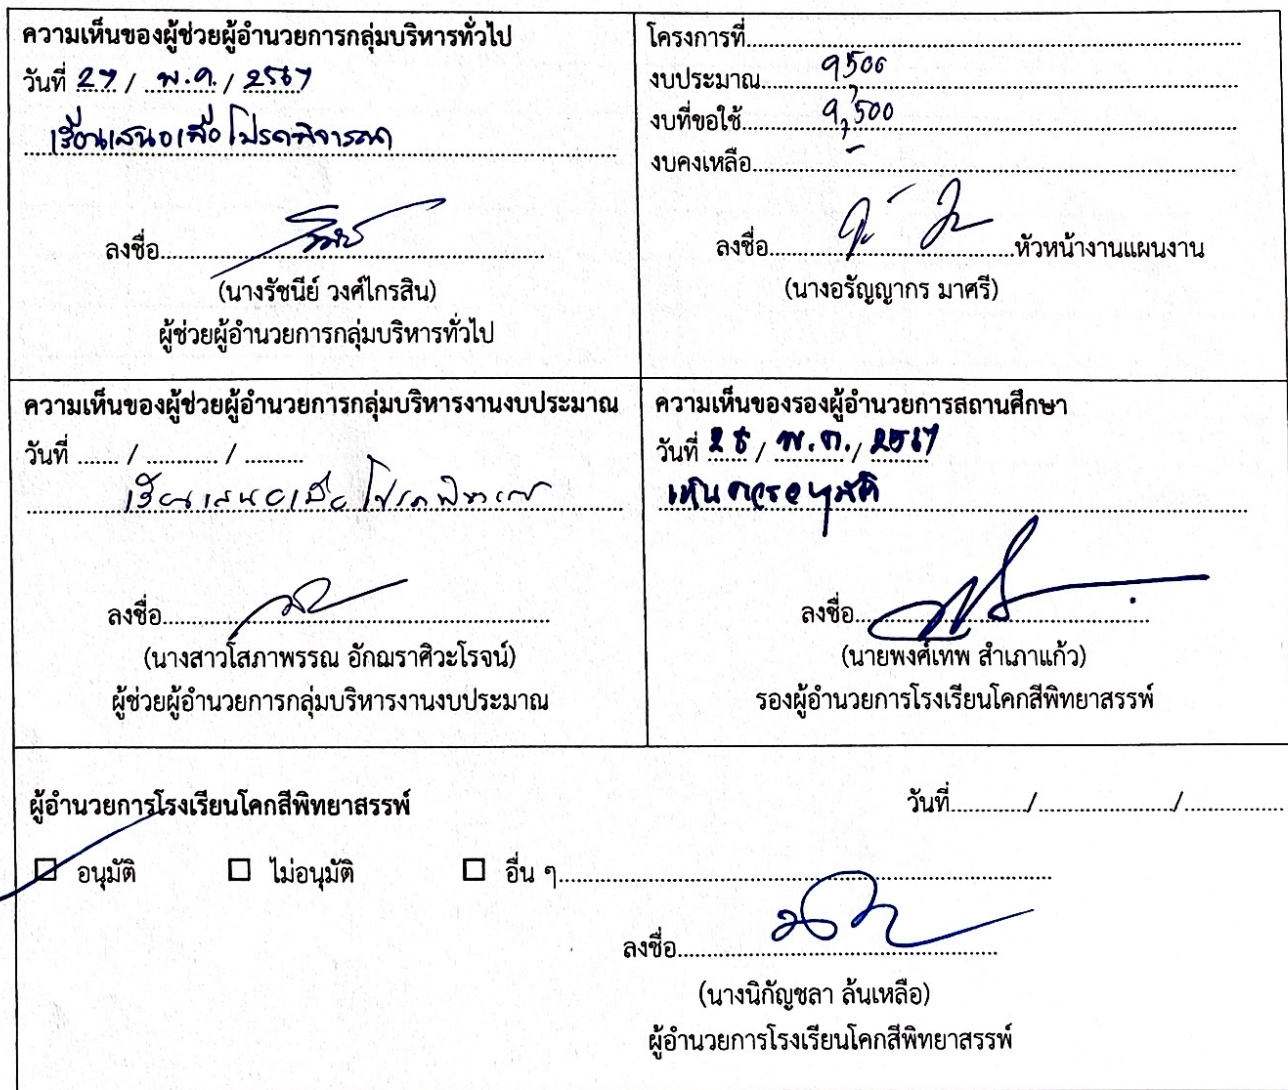 ความเห็นของผู้ช่วยผู้อำนวยการกลุ่มบริหารทั่วไป
วันที่ 27 / พ.ค. / 2567
เรียนเสนอเพื่อโปรดพิจารณา
ลงชื่อ
(นางรัชนีย์ วงศ์ไกรสิน)
ผู้ช่วยผู้อำนวยการกลุ่มบริหารทั่วไป
โครงการที่
งบประมาณ 9,500
งบที่ขอใช้ 9,500
งบคงเหลือ -
ลงชื่อ หัวหน้างานแผนงาน
(นางอรัญญากร มาศรี)
ความเห็นของผู้ช่วยผู้อำนวยการกลุ่มบริหารงานงบประมาณ
วันที่ ...... / ........... / .........
เรียนเสนอเพื่อโปรดพิจารณา
ลงชื่อ
(นางสาวโสภาพรรณ อักฌราศิวะโรจน์)
ผู้ช่วยผู้อำนวยการกลุ่มบริหารงานงบประมาณ
ความเห็นของรองผู้อำนวยการสถานศึกษา
วันที่ 28 / พ.ค. / 2567
เห็นควรอนุมัติ
ลงชื่อ
(นายพงศ์เทพ สำเภาแก้ว)
รองผู้อำนวยการโรงเรียนโคกสีพิทยาสรรพ์
ผู้อำนวยการโรงเรียนโคกสีพิทยาสรรพ์ วันที่............/......................./...............
☐ อนุมัติ ☐ ไม่อนุมัติ ☐ อื่น ๆ
ลงชื่อ
(นางนิกัญชลา ล้นเหลือ)
ผู้อำนวยการโรงเรียนโคกสีพิทยาสรรพ์